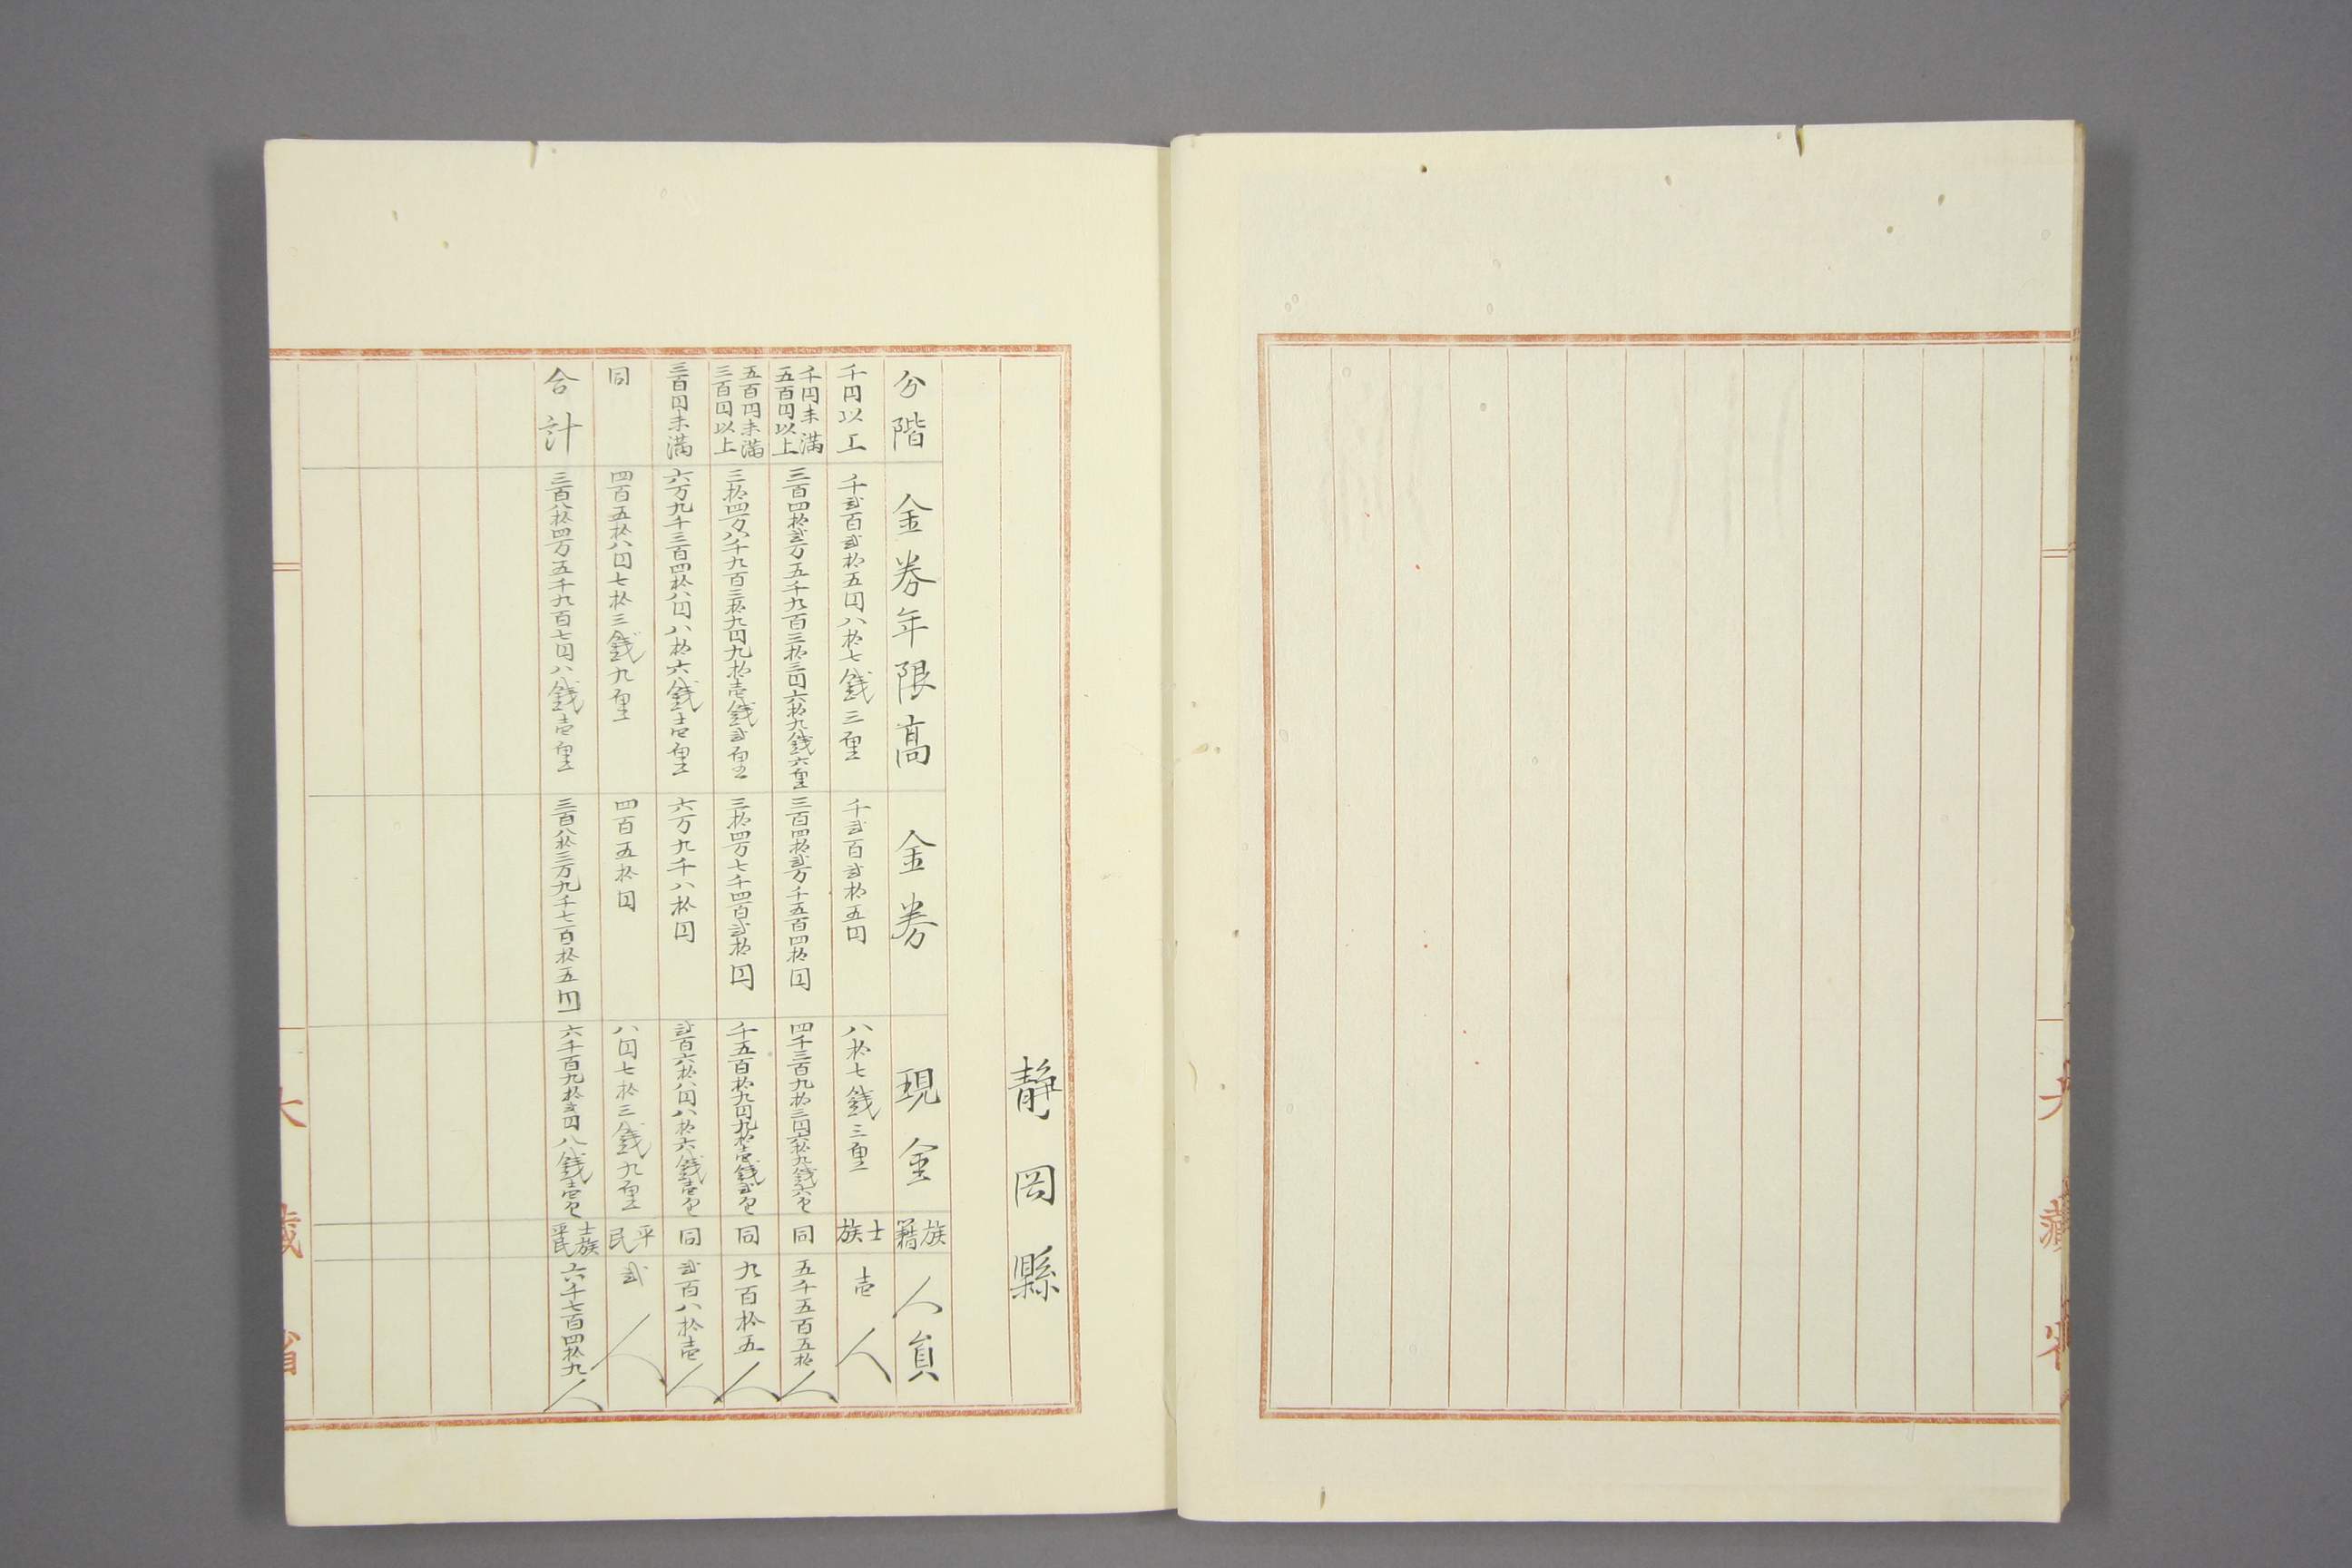 大藏省
静岡縣
分階 金券年限高 金券 現金 族籍 人員
千円以上 千弐百弐拾五円八拾七銭三厘 千弐百弐拾五円 八拾七銭三厘 士族 壱人
千円未満五百円以上 三百四拾弐万五千九百三拾三円六拾九銭六厘 三百四拾弐万千五百四拾円 四千三百九拾三円六拾九銭六厘 同 五千五百五拾人
五百円未満三百円以上 三拾四万八千九百三拾九円九拾壱銭弐厘 三拾四万七千四百弐拾円 千五百拾九円九拾壱銭弐厘 同 九百拾五人
三百円未満 六万九千三百四拾八円八拾六銭壱厘 六万九千八拾円 弐百六拾八円八拾六銭壱厘 同 弐百八拾壱人
同 四百五拾八円七拾三銭九厘 四百五拾円 八円七拾三銭九厘 平民 弐人
合計 三百八拾四万五千九百七円八銭壱厘 三百八拾三万九千七百拾五円 六千百九拾弐円八銭壱厘 士族平民 六千七百四拾九人
大藏省